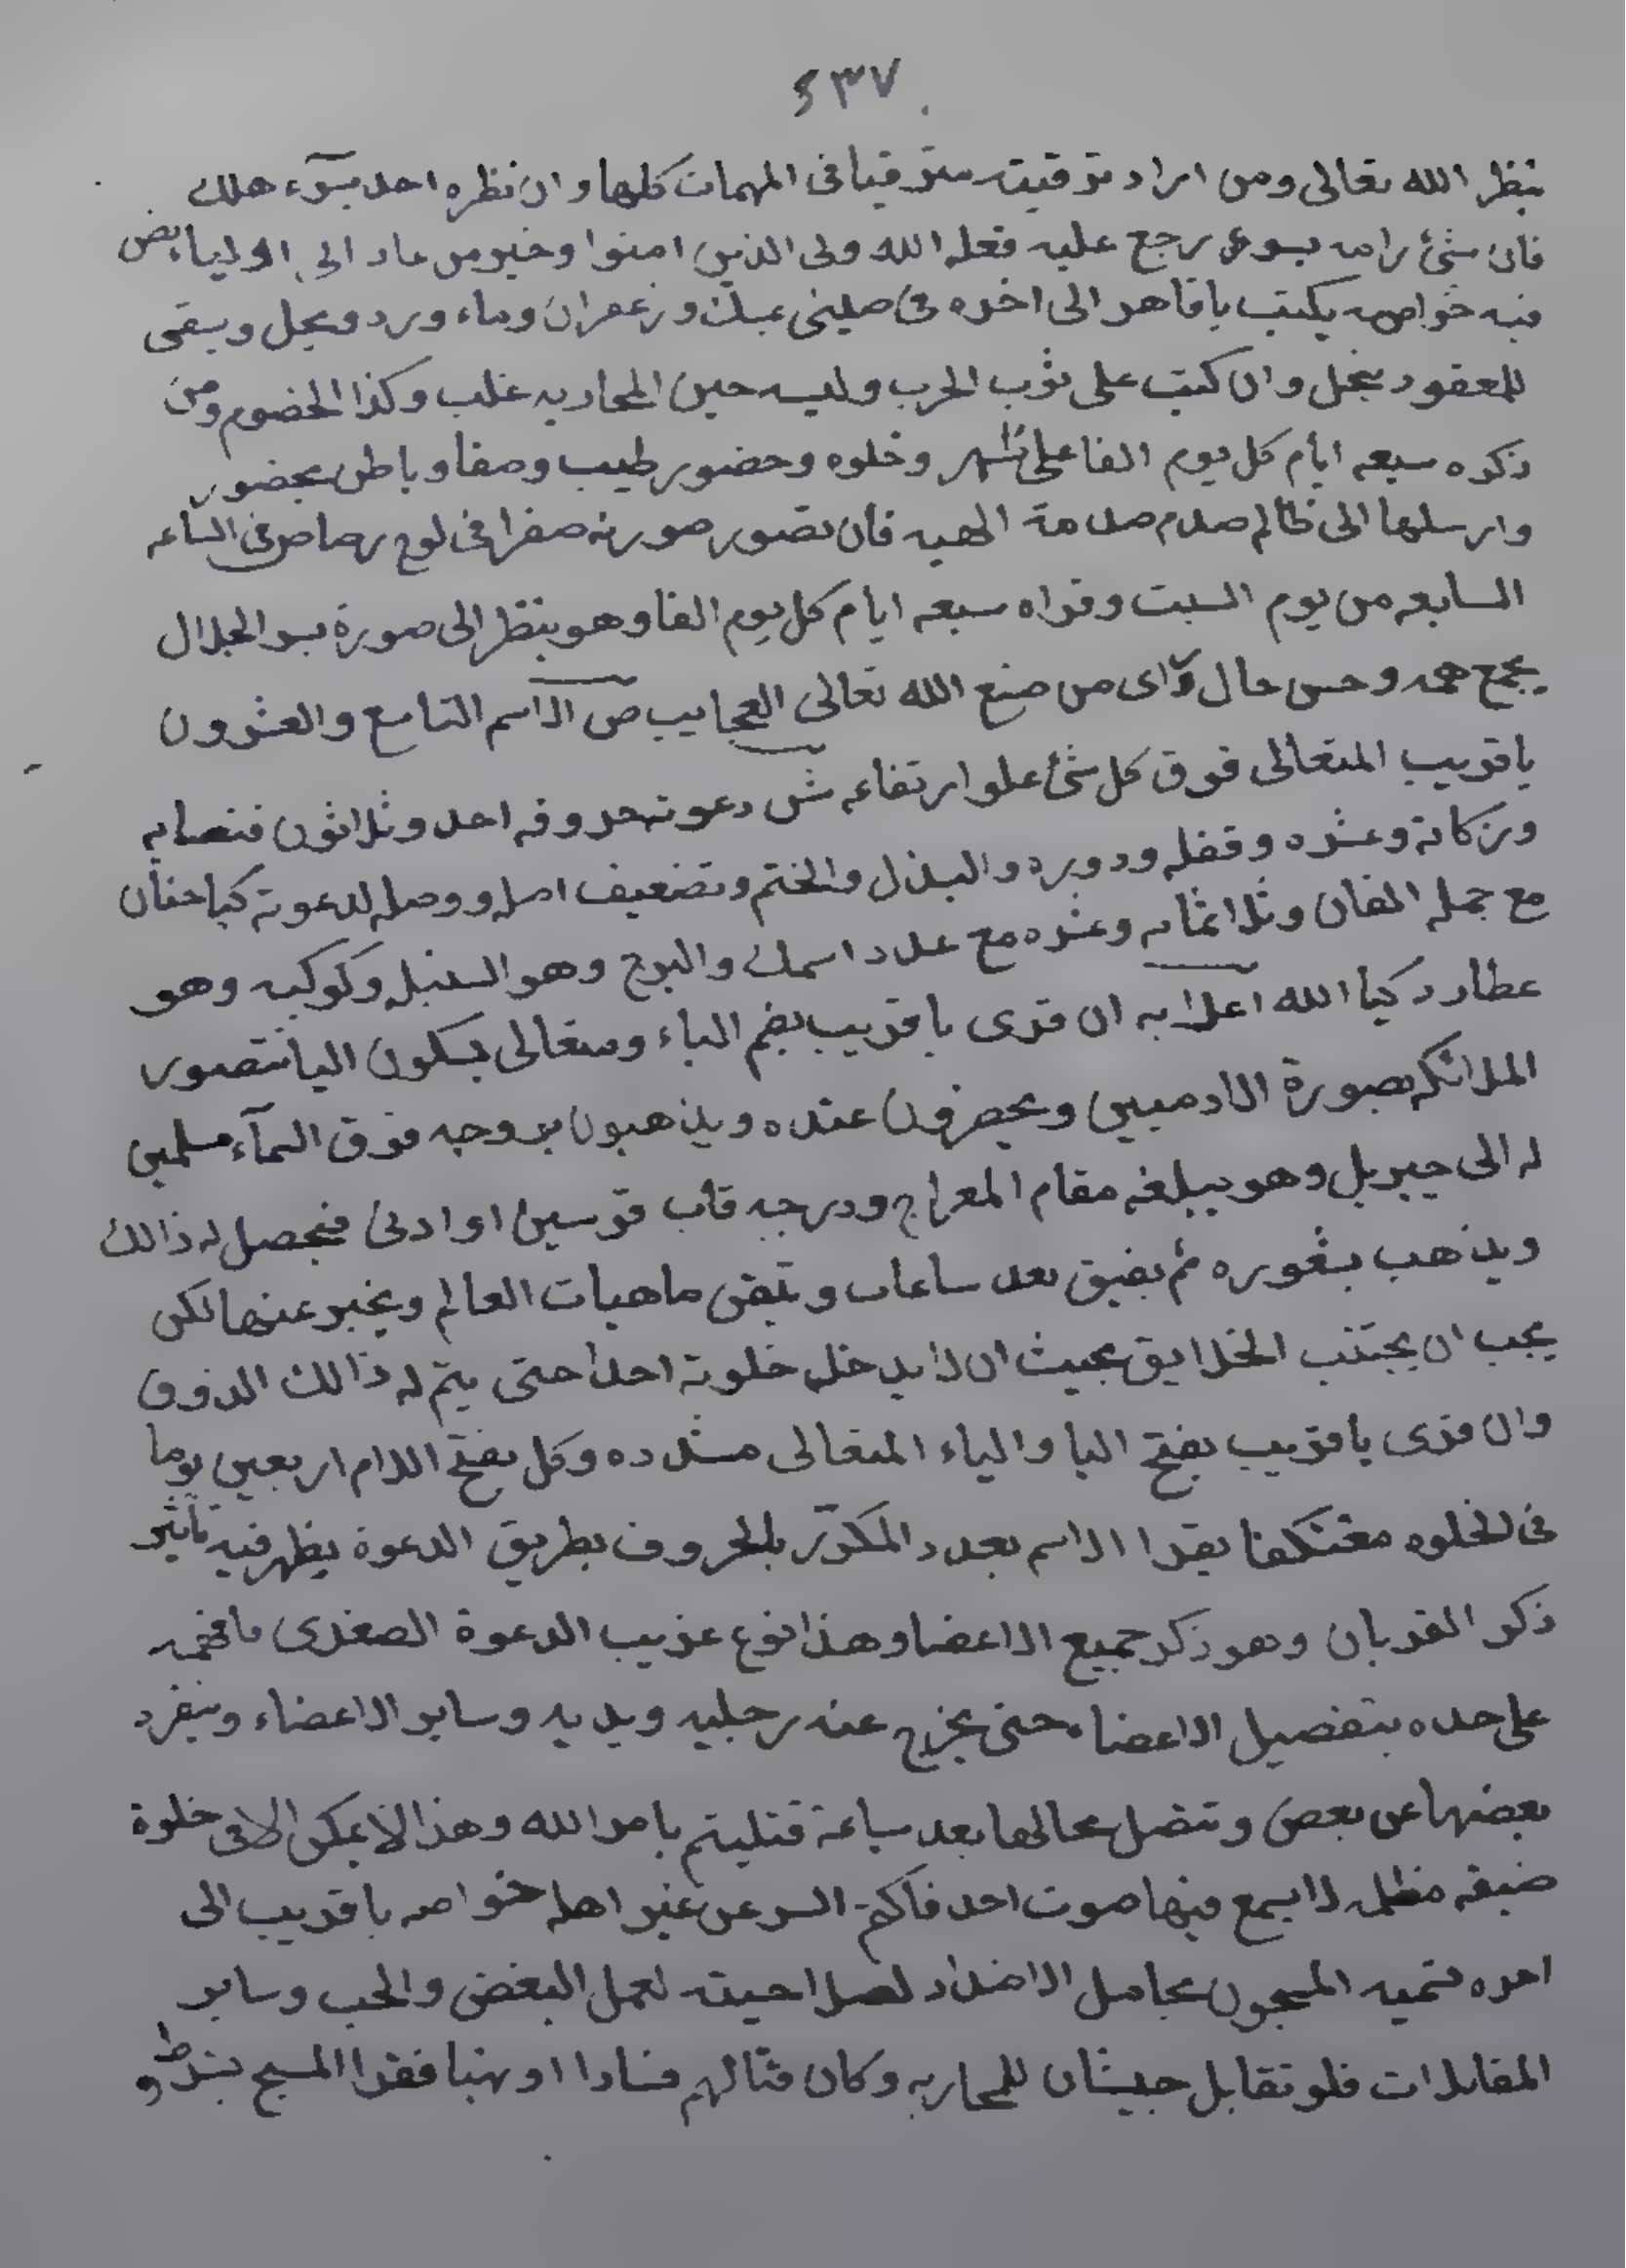 ٤٣٧
ينظر الله تعالى ومن اراد توقيته متوقيا فى المهمات كلها وان نظره احد بسوء هلك
فان شئ رامه بسوء رجع عليه فعله الله ولى الذين امنوا وخير من عاد الى اولياء بض
فيه خواصه يكتب ياقاهر الى اخره فى صلينى بمسك وزعفران وماء ورد ويحل ويسقى
للمعقود ينحل وان كتب على ثوب الحرب ولبسه حين المحاربه غلب وكذا الخضوم ومن
ذكره سبعه ايام كل يوم الفا على طهر وخلوه وحضور طيب وصفا وباطن بحضور
وارسلها الى ظالم صدم صدمة الهيه فان تصور صورته صفرا فى لوح رصاص فى الساعه
السابعه من يوم السبت وقراه سبعه ايام كل يوم الفا وهو ينظر الى صورة بسر الجلال
بجمع همه وحسن حال رآى من صنع الله تعالى العجايب ص الاسم التاسع والعشرون
ياقريب المتعالى فوق كل شئ علو ارتفاعه ش دعوته حروفه احد وثلاثون فنصابه
وزكاته وعشره وقفله ودوره والبذل والختم وتضعيف اصله ووصله لدعوته كيا حنان
مع جمله الفان وثلاثمايه وعشره مع عدد اسمك والبرج وهو السنبله وكوكبه وهو
عطارد كيا الله اعلا به ان قرى ياقريب بضم الباء ومتعالى بسكون اليا تتصور
الملائكه بصورة الادميين ويحضرون عنده ويذهبون بروحه فوق السمآء مسلمين
له الى جبريل وهو يبلغه مقام المعراج ودرجه قاب قوسين او ادنى فيحصل له ذالك
ويذهب بشعوره ثم يفيق بعد ساعات وتبقى ماهيات العالم ويخبر عنها لكن
يجب ان يجتنب الخلايق بحيث ان لا يدخل خلوته احدا حتى يتم له ذالك الذوق
وان قرى ياقريب بفتح اليا والياء المتعالى مشدده وكل بفتح اللام اربعين يوما
فى الخلوه معتكفا يقرا الاسم بعدد المكرر بالحروف بطريق الدعوة يظهر فيه تاثير
ذكر القربان وهو ذكر جميع الاعضا وهذا نوع غريب الدعوة الصغرى مافهمه
على حده بتفصيل الاعضاء حتى يخرج عنه رجليه ويديه وساير الاعضاء وينفرد
بعضها عن بعض وتتصل بحالها بعد ساعة فتليتم بامر الله وهذا لا يمكن الا فى خلوة
ضيقه مظلمه لا يسمع فيها صوت احد فاكتم السر عن غير اهله خواصه ياقريب الى
اخره تسميه المسبحون بحامل الاضداد لصلاحيته لعمل البغض والحب وساير
المقابلات فلو تقابل جيشان للمحاربه وكان قتالهم فسادا او نهبا فقرا المسبح بشرط و